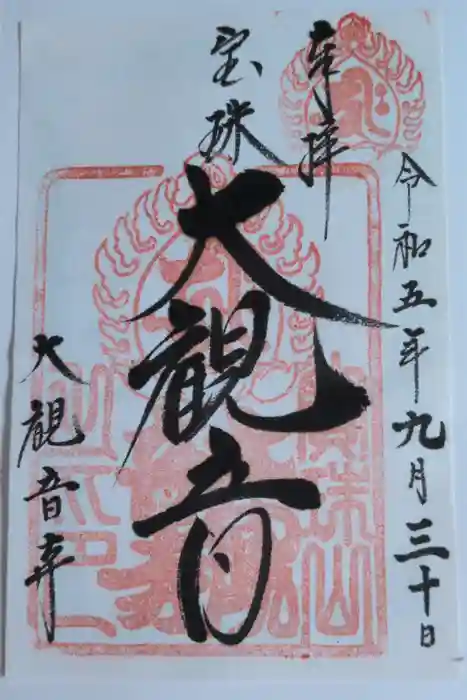 令和五年九月三十日
奉拝
宝珠
大観音
大観音寺
宝珠山